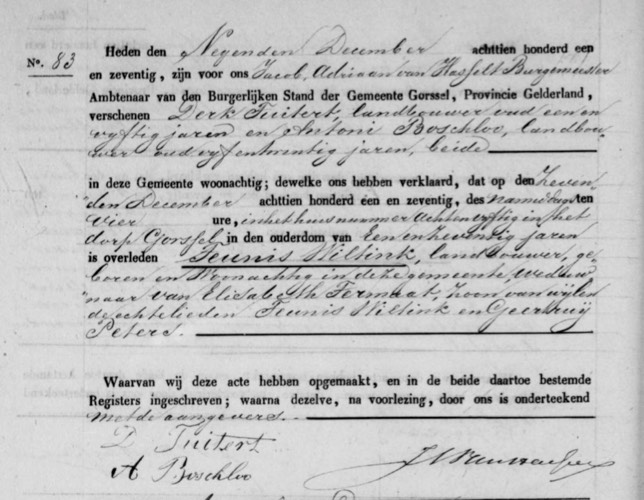 Nº. 83
Heden den Negenden December achttien honderd een
en zeventig, zijn voor ons Jacob, Adriaan van Hasselt Burgemeester
Ambtenaar van den Burgerlijken Stand der Gemeente Gorssel, Provincie Gelderland,
verschenen Derk Tuitert, landbouwer oud een en
vyftig jaren en Antoni Boschloo, landbou
wer oud vyfentwintig jaren, beide
in deze Gemeente woonachtig; dewelke ons hebben verklaard, dat op den Zeven
den December achttien honderd een en zeventig, des namiddags ten
Vier ure, in het huis nummer achtenvyftig in het
dorp Gorssel, in den ouderdom van Een en zeventig jaren
is overleden Teunis Wiltink, landbouwer, ge
boren en Woonachtig in deze gemeente, Weduw
naar van Elisabeth Termaat, zoon van wijlen
de echtelieden Teunis Wiltink en Geertruy
Peters.
Waarvan wij deze acte hebben opgemaakt, en in de beide daartoe bestemde
Registers ingeschreven; waarna dezelve, na voorlezing, door ons is onderteekend
met de aangevers.
D Tuitert
A Boschloo